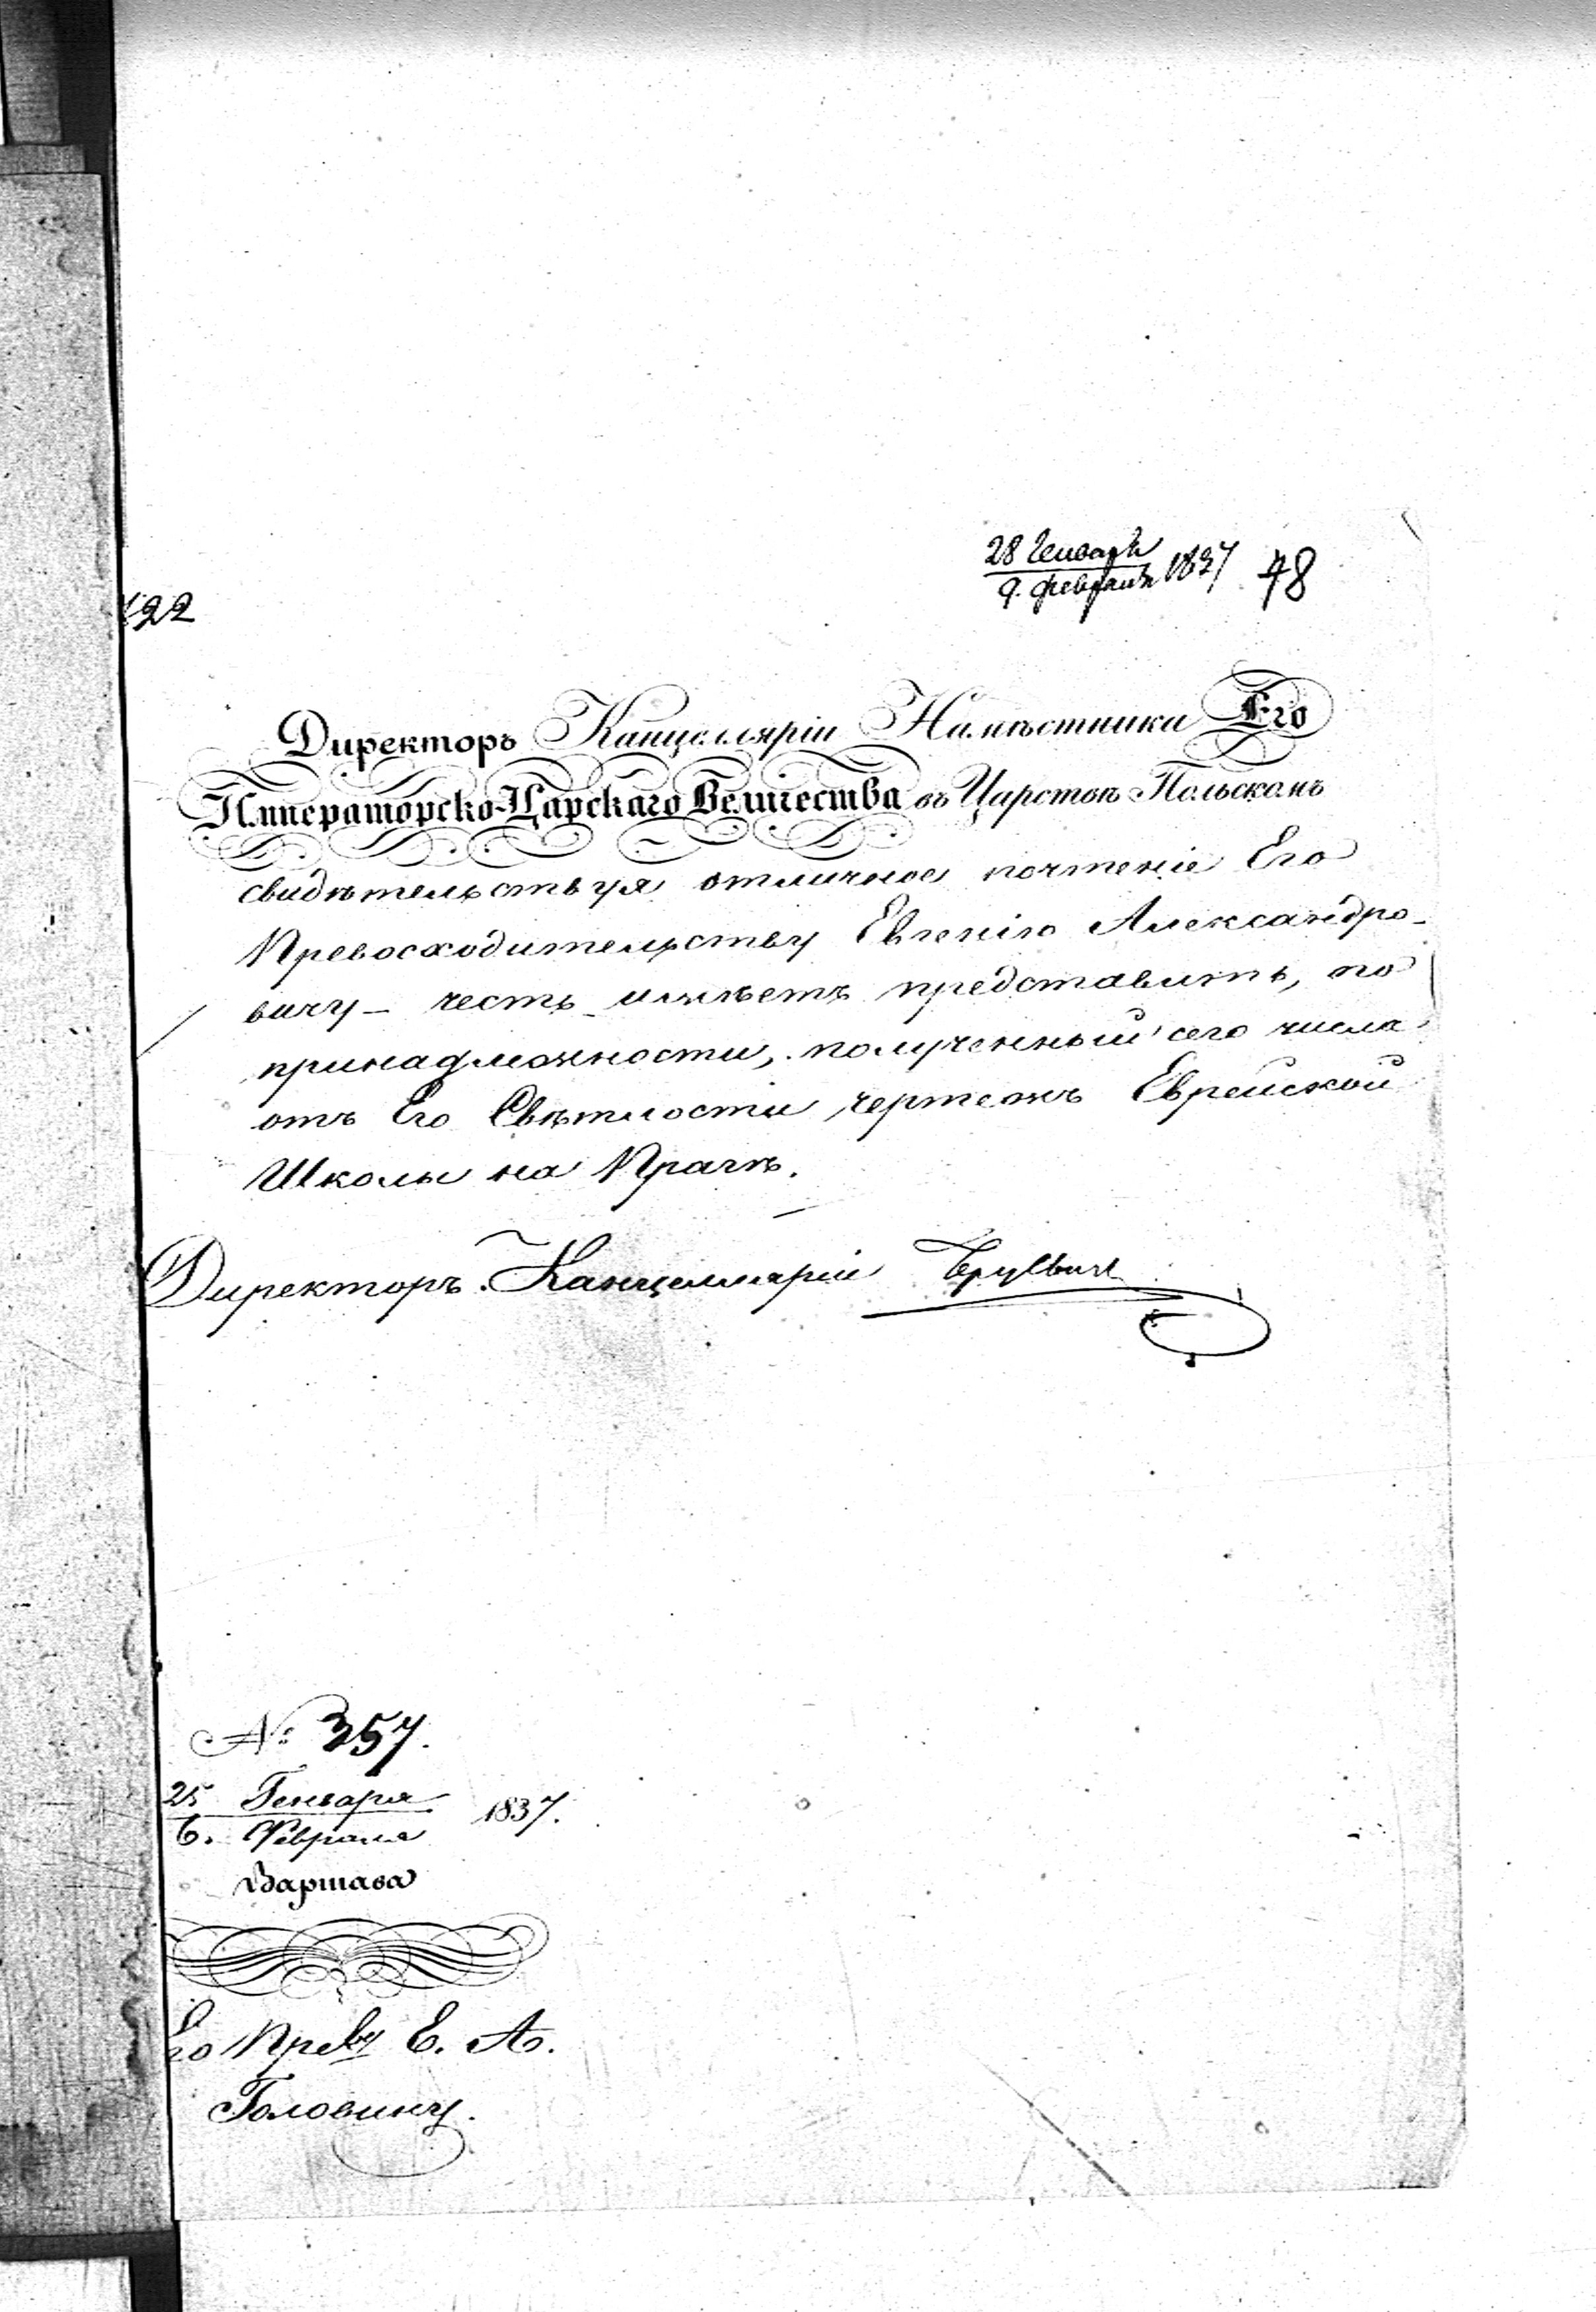 28 Генваря
9. Февраля 1837 78
122
Директоръ Канцелляріи Намѣстника Его
Императорско-Царскаго Величества въ Царствѣ Польскомъ
свидѣтельствуя отличное почтеніе Его
Превосходительству Евгенію Александро-
вичу - честь имѣетъ представить, по
принадлежности, полученный сего числа
отъ Его Свѣтлости чертежъ Еврейской
Школы на Прагѣ.
Директоръ Канцелляріи
№ 357.
25 Генваря
6. Февраля 1837.
Варшава
Его Преву Е. А.
Головину.